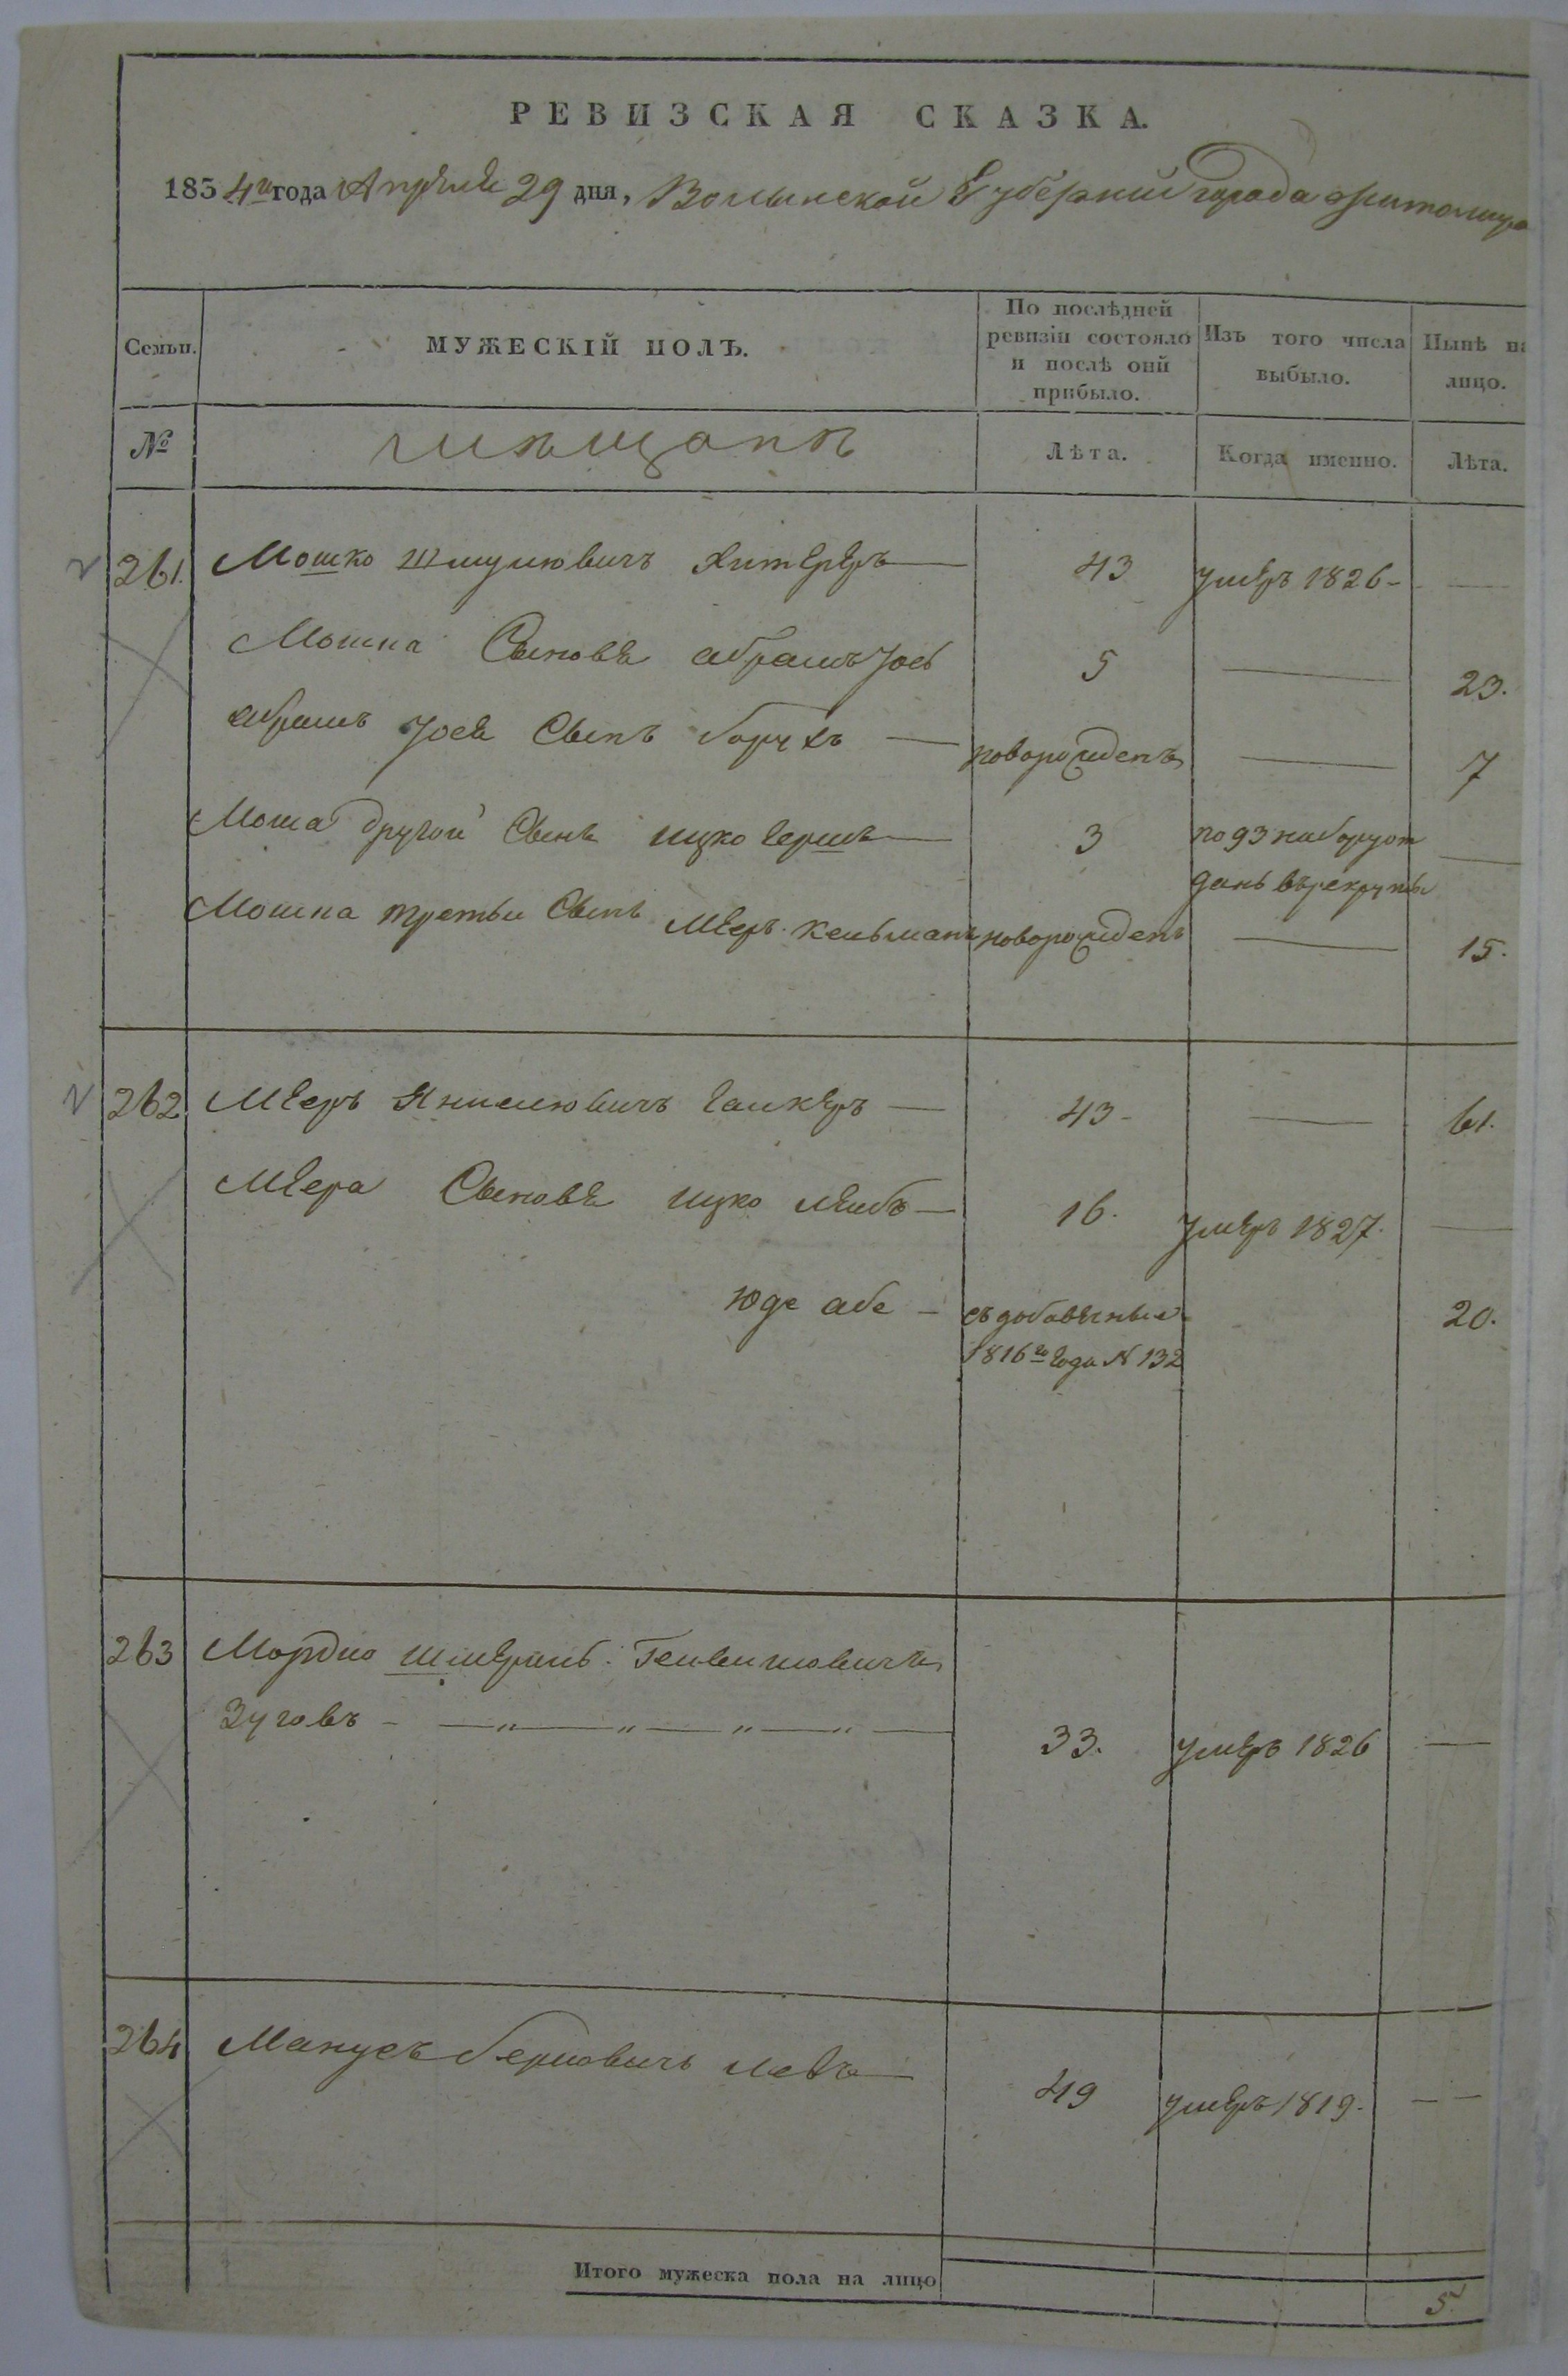 РЕВИЗСКАЯ СКАЗКА.
1834го года Апреля 29 дня, Волынской Губернии города Житомира
Семьи.
МУЖЕСКІЙ ПОЛЪ.
По послѣдней ревизіи состояло и послѣ оній прибыло.
Изъ того числа выбыло.
Нынѣ на лицо.
№
мѣщанъ
Лѣта.
Когда именно.
Лѣта.
261. Мошко Шмулювичъ Хитеръръ 43 умеръ 1826 —
Мошка Сыновя абрамъ Іось 5 — 23.
абрамъ Іося Сынъ борухъ — новорожденъ — 7
Моша другой Сынъ ицко гершъ — 3 по 93 набору от
данъ въ рекруты —
Мошка третьи Сынъ Меер. кельманъ новорожденъ — 15.
262 Мееръ Янкелювичъ — 43 — 61.
Меера Сыновя ицко лейбъ — 16. умеръ 1827. —
Юде абе — съ добавочныхъ 20.
1816го года N 132
263 Мордко шмеръль
Зуговъ — " — " — " — " — 33. умеръ 1826 —
264 Манусъ берковичъ 49 умеръ 1819. — —
Итого мужеска пола на лицо 5